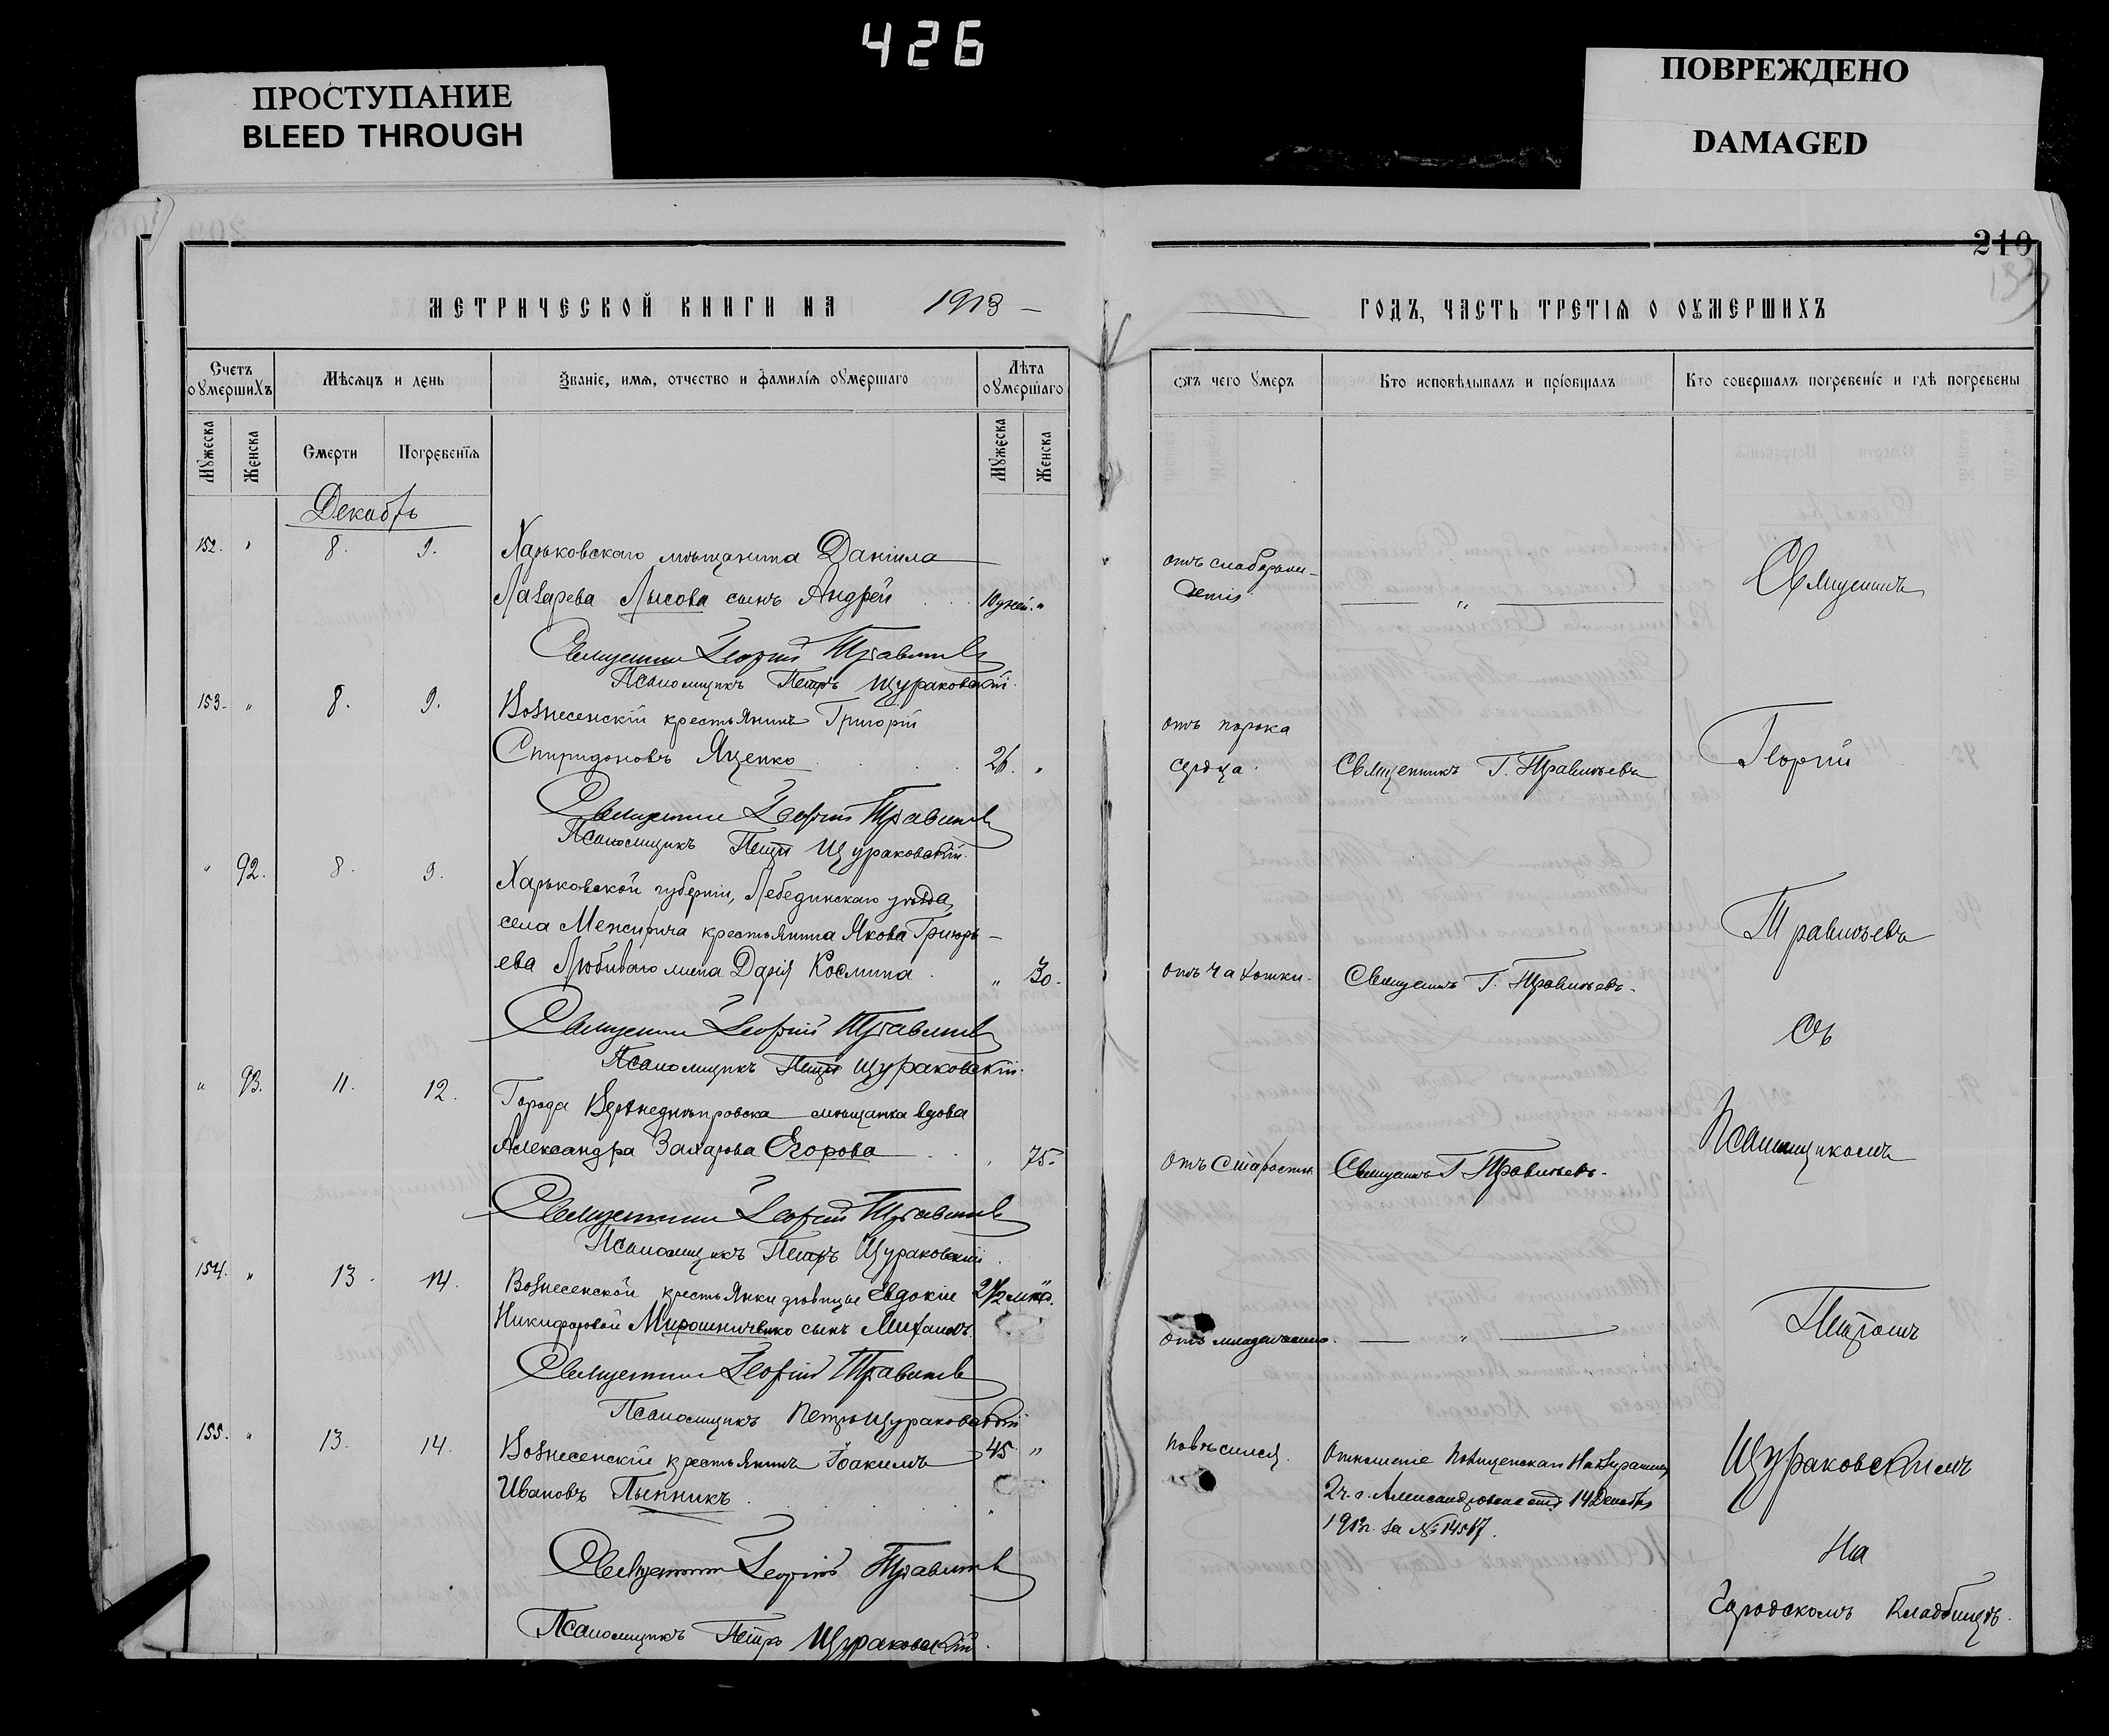 426
ПРОСТУПАНИЕ
BLEED THROUGH
ПОВРЕЖДЕНО
DAMAGED
210
МЕТРИЧЕСКОЙ КНИГИ НА 1913
ГОДЪ, ЧАСТЬ ТРЕТІѦ О ОУМЕРШИХЪ
Счетъ оумершихъ
Мѣсѧцъ и день
Званіе, имѧ, отчество и фамилїѧ оумершаго
Лѣта оумершаго
Мужеска
Женска
Смерти
Погребенїѧ
Мужеска
Женска
отъ чего умеръ
Кто исповѣдывалъ и прїобщалъ
Кто совершалъ погребенїе и гдѣ погребены
Декабрь
152. " 8. 9. Харьковскаго мѣщанина Даніила
Лазарева Лысова сынъ Андрей 10 дней. "
Священникъ Георгій Травиньевъ
Псаломщикъ Петръ Щураковскій.
153. " 8. 9. Вознесенскій крестьянинъ Григорій
Спиридоновъ Яценко 26. "
Священникъ Георгій Травиньевъ
Псаломщикъ Петръ Щураковскій.
" 92. 8. 9. Харьковской губерніи, Лебединскаго уѣзда,
села Межирича крестьянина Якова Григорь-
ева Любиваго жена Дарія Косьмина " 30.
Священникъ Георгій Травиньевъ
Псаломщикъ Петръ Щураковскій.
" 93. 11. 12. Города Верхнеднѣпровска мѣщанка вдова
Александра Захарова Егорова 75.
Священникъ Георгій Травиньевъ
Псаломщикъ Петръ Щураковскій.
154. " 13. 14. Вознесенской крестьянки дѣвицы Евдокіи 2½ мѣс.
Никифоровой Мирошниченко сынъ Михаилъ.
Священникъ Георгій Травиньевъ
Псаломщикъ Петръ Щураковскій
155. " 13. 14. Вознесенскій крестьянинъ Іоакимъ 45 "
Ивановъ Пыпникъ
Священникъ Георгій Травиньевъ
Псаломщикъ Петръ Щураковскій.
отъ слаборож-
денія "
отъ порока
сердца. Священникъ Г. Травиньевъ
отъ чахотки. Священникъ Г. Травиньевъ.
отъ старости Священникъ Г. Травиньевъ.
отъ младенческой. "
повѣсился. Отношеніе Полицейскаго Надзирателя
2 ч. г. Александровска отъ 14 Декабря
1913 г. за № 14517.
Священникъ
Георгій
Травиньевъ
съ
Псаломщикомъ
Петромъ
Щураковскимъ
на
Городскомъ кладбищѣ.